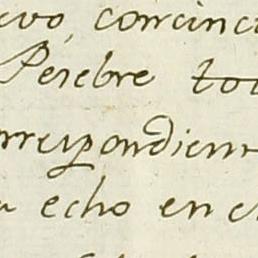 evo, concinc
Pesebre to
rrespondien
echo en e